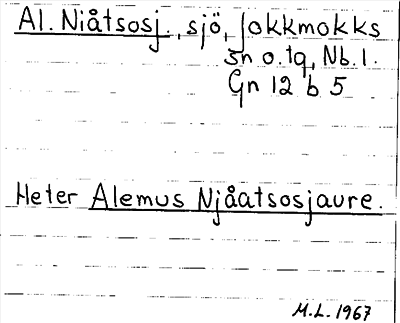 Al. Niåtsosj., sjö, Jokkmokks
sn o. tg, Nb. l.
Gn 12 b 5
Heter Alemus Njåatsosjaure.
M.L. 1967